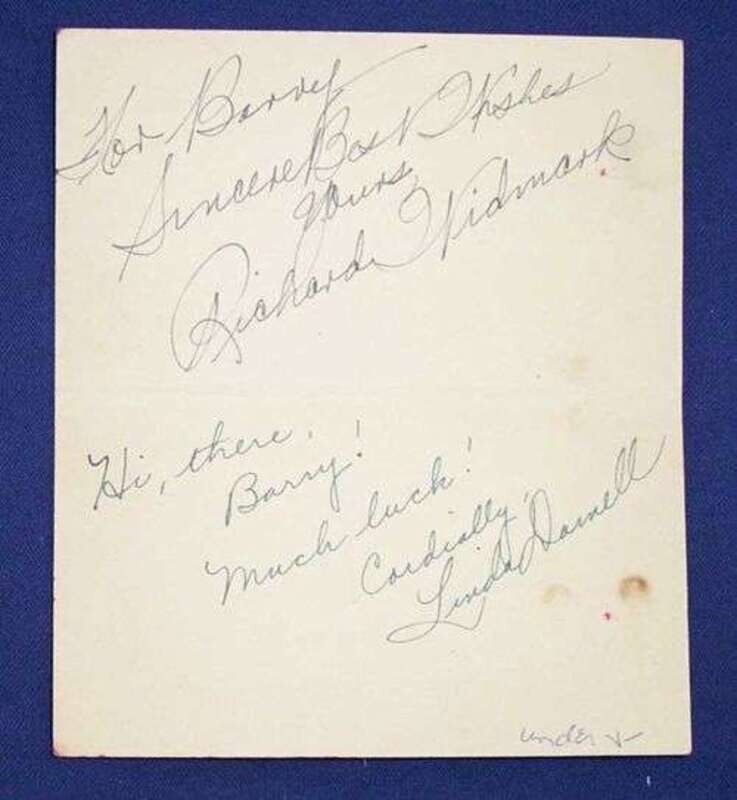 For Barry
Sincere Best Wishes
Yours,
Richard Widmark
Hi, there,
Barry!
Much luck!
Cordially,
Linda Darnell
under